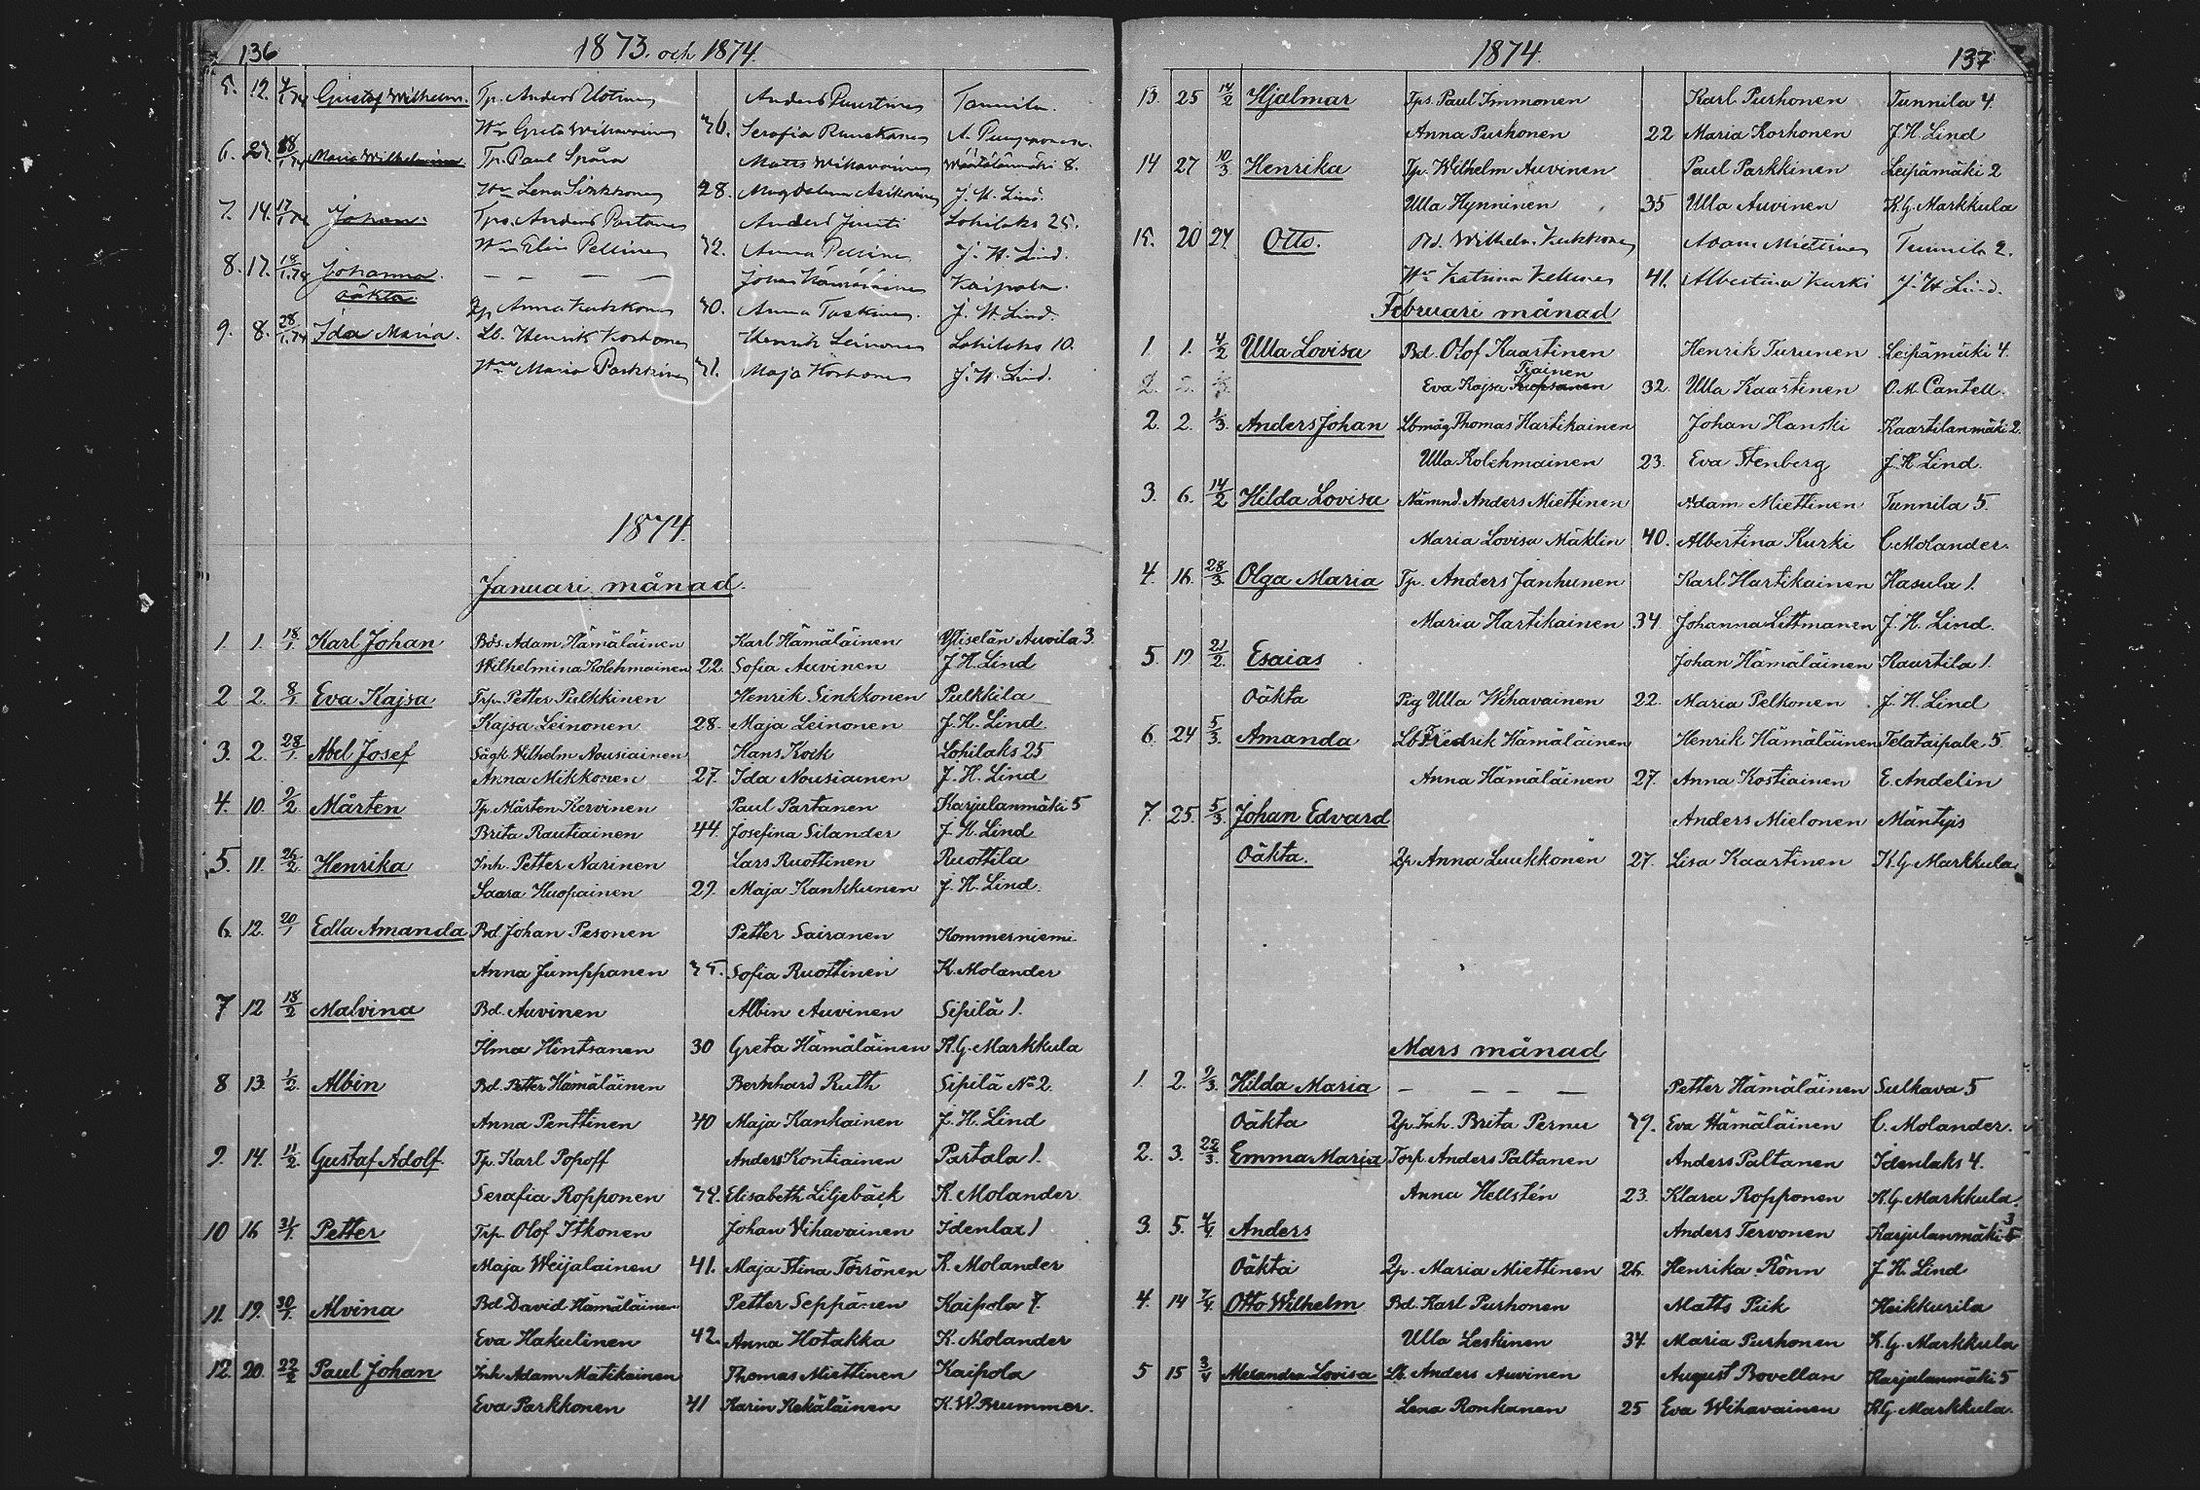 136
1873. och 1874.
5. 12. 4/1.74 Gustaf Wilhelm. Tp. Anders Anders Tannila.
Hu Greta Wihavainen 36. Serafia A.
6. 27. 18/1.74 Maria Wilhelmina Tp. Paul Spåra Matts Wihavainen 8.
Hu Lena Sinkkonen 28. Magdalena Asikainen J. H. Lind.
7. 14. 17/1.74 Johan. Tps. Anders Partanen Anders Lohilaks 25.
Hu Elin Pellinen 32. Anna Pellinen J. H. Lind.
8. 17. 18/1.74 Johanna. — — — Johan Hämäläinen Kaipola.
oäkta. Anna Kukkonen 30. Anna Taskinen. J. H. Lind.
9. 8. 28/1.74 Ida Maria. Lb. Henrik Korhonen Henrik Leinonen Lohilaks 10.
Maria Parkkinen 31. Maja Korhonen J. H. Lind.
1874.
Januari månad.
1. 1. 18/1. Karl Johan Bds. Adam Hämäläinen Karl Hämäläinen Auvila 3
Wilhelmina Kolehmainen 22. Sofia Auvinen J. H. Lind
2 2. 8/1 Eva Kajsa Trp. Petter Pulkkinen Henrik Sinkkonen Pulkkila
Kajsa Leinonen 28. Maja Leinonen J. H. Lind
3. 2. 28/1 Abel Josef Vilhelm Nousiainen Hans Kock Lohilaks 25
Anna Mikkonen 27. Ida Nousiainen J. H. Lind
4. 10. Mårten Tp. Mårten Korvinen Paul Partanen Karjulanmäki 5
Brita Rautiainen 44. Josefina Silander J. H. Lind
5. 11. 26/2 Henrika Inh. Petter Narinen Lars Ruottinen Ruottila
Saara Huopainen 29. Maja Kankkunen J. H. Lind.
6. 12. 20/1 Edla Amanda Bd. Johan Pesonen Petter Sairanen Kommerniemi
Anna Jumppanen 35. Sofia Ruottinen K. Molander
7 12 18/2 Malvina Bd. Auvinen Albin Auvinen Sipilä 1.
Ilma Hintsanen 30 Greta Hämäläinen K. G. Markkula
8 13. 1/2. Albin Bd. Petter Hämäläinen Bernhard Ruth Sipilä No 2.
Anna Penttinen 40 Maja Kankainen J. H. Lind
9. 14. 11/2. Gustaf Adolf. Tp. Karl Popoff Anders Kontiainen Partala 1.
Serafia Ropponen 34. Elisabeth Liljebäck K. Molander
10 16 31/1. Petter Trp. Olof Itkonen Johan Vihavainen Idenlax 1
Maja Weijalainen 41. Maja Stina Törrönen K. Molander
11. 19. 30/1. Alvina Bd. David Hämäläinen Petter Seppänen Kaipola 7.
Eva Hakulinen 42. Anna Hotakka K. Molander
12. 20. 22/2 Paul Johan Inh. Adam Matikainen Thomas Miettinen Kaipola
Eva Parkkonen 41 Karin Kekäläinen K. W. Brummer.
1874.
137
13. 25 14/2 Hjalmar Tps. Paul Immonen Karl Purhonen Tunnila 4.
Anna Purhonen 22 Maria Korhonen J. H. Lind
14 27 10/3 Henrika Tp. Wilhelm Auvinen Paul Parkkinen Leipämäki 2
Ulla Hynninen 35 Ulla Auvinen K. G. Markkula
15. 20 24. Otto. Bd. Wilhelm Kukkonen Adam Miettinen Tunnila 2.
Hu Katrina Kellinen 41. Albertina Kurki J. H. Lind.
Februari månad
1. 1. 4/2 Ulla Lovisa Bd. Olof Kaartinen Henrik Turunen Leipämäki 4.
Tiainen
Eva Kajsa 32. Ulla Kaartinen O. M. Cantell.
2. 2. 1/3. Anders Johan Lbmåg Thomas Hartikainen Johan Hanski Kaartilanmäki 2.
Ulla Kolehmainen 23. Eva Stenberg J. H. Lind.
3. 6. 14/2 Hilda Lovisa Nämnd. Anders Miettinen Adam Miettinen Tunnila 5.
Maria Lovisa Mäklin 40. Albertina Kurki C. Molander.
4. 16. 28/3. Olga Maria Tp. Anders Janhunen Karl Hartikainen Hasula 1.
Maria Hartikainen 34 Johanna Littmanen J. H. Lind.
5. 19. 21/2. Esaias Johan Hämäläinen Kaartila 1.
Oäkta Pig Ulla Wihavainen 22. Maria Pelkonen J. H. Lind
6. 24 5/3. Amanda Lb. Fredrik Hämäläinen Henrik Hämäläinen Telataipale 5.
Anna Hämäläinen 27. Anna Kostiainen E. Andelin
7. 25. 5/3. Johan Edvard Anders Mielonen Mäntyis
Oäkta. Anna Luukkonen 27. Lisa Kaartinen K. G. Markkula.
Mars månad
1. 2. 9/3. Hilda Maria — — — — Petter Hämäläinen Sulkava 5
Oäkta Inh. Brita Pernu 39. Eva Hämäläinen C. Molander.
2. 3. 22/3. Emma Maria Torp. Anders Paltanen Anders Paltanen Idenlaks 4.
Anna Hellstén 23. Klara Ropponen K. G. Markkula.
3. 5. 4/4. Anders Anders Tervonen Karjulanmäki 3
Oäkta Maria Miettinen 26. Henrika Rönn J. H. Lind
4. 14 7/4. Otto Wilhelm Bd. Karl Purhonen Matts Piik Heikkurila
Ulla Leskinen 34. Maria Purhonen K. G. Markkula
5 15 3/4 Alexandra Lovisa Lb. Anders Auvinen August Bovellan Karjulanmäki 5
Lena Ronkanen 25 Eva Wihavainen K. G. Markkula.